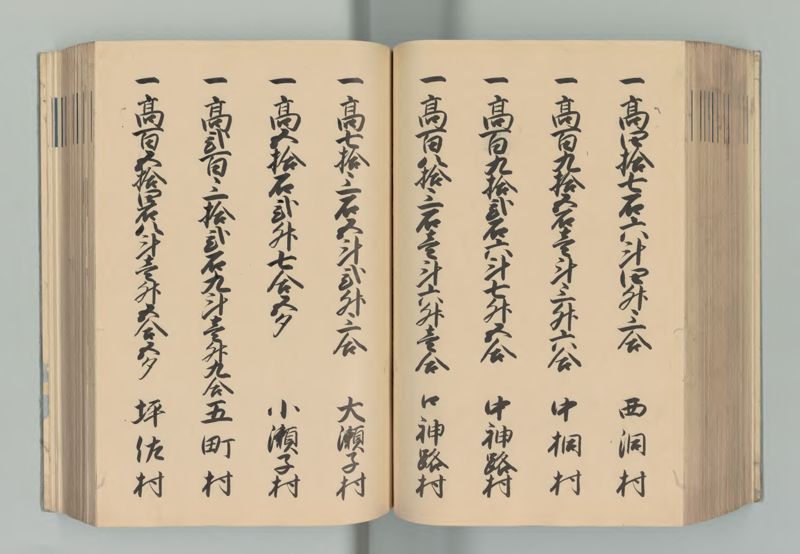 一高四拾七石六斗四升三合 西洞村
一高百九拾五石壱斗三升六合 中桐村
一高百九拾弐石六斗七升五合 中神路村
一高百八拾三石壱斗六升壱合 口神路村
一高七拾三石五斗弐升三合 大瀬子村
一高五拾石弐升七合五夕 小瀬子村
一高弐百三拾弐石九斗壱升九合 五町村
一高百五拾四石八斗壱升五合五夕 坪佐村